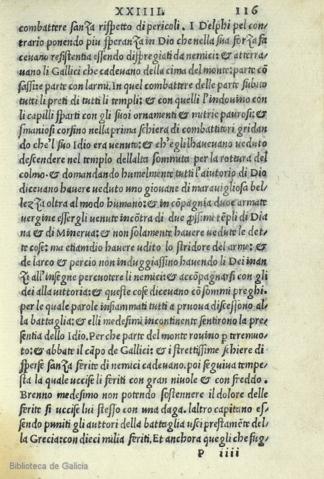 XXIIII. 116
combattere sanza rispetto di pericoli. I Delphi pel con
trario ponendo piu speranza in Dio che nella sua forza fa
cevano resistentia essendo dispregiati da nemici: & atterra
vano li Gallici che cadevano della cima del monte: parte cō
sassi & parte con larmi. In quel combattere delle parte subito
tutti li preti di tutti li templi: & con quelli l'indovino con
li capilli sparti con gli suoi ornamenti & mitrie paurosi: &
smaniosi corsino nella prima schiera di combattitori gridan
do che'l suo Idio era venuto: & ch'egli havevano veduto
descendere nel templo dellalta sommita per la rottura del
colmo. & domandando humelmente tutti l'aiutorio di Dio
dicevano havere veduto uno giovane di maravigliosa bel
lezza oltra al modo humano: & in cōpagnia due armate
vergine essergli venute incōtra di due prossimi tēpli di Dia
na & di Minerva: & non solamente havere vedute le det
te cose: ma etiamdio havere udito lo stridore del arme: &
de larco & percio non induggiassino havendo li Dei inan
zi all'insegne percuotere li nemici: & accōpagnarsi con gli
dei alla vittoria: & queste cose dicevano cō sommi preghi.
per le quale parole infiammati tutti a pruova discessono al
la battaglia: & elli medesimi incontinente sentirono la pre
sentia dello Idio. Perche parte del monte rovino p terremuo
to: & abbate il cāpo de Gallici: & i strettissime schiere di
sperse sanza ferite di nemici cadevano. poi seguiva tempe
sta la quale uccise li feriti con gran nivole & con freddo.
Brenno medesimo non potendo sostennere il dolore delle
ferite si uccise lui stesso con una daga. laltro capitano es
sendo puniti gli auttori della battaglia usci prestamēte del
la Grecia: con dieci milia feriti. Et anchora quegli che fug
P iiii
Biblioteca de Galicia